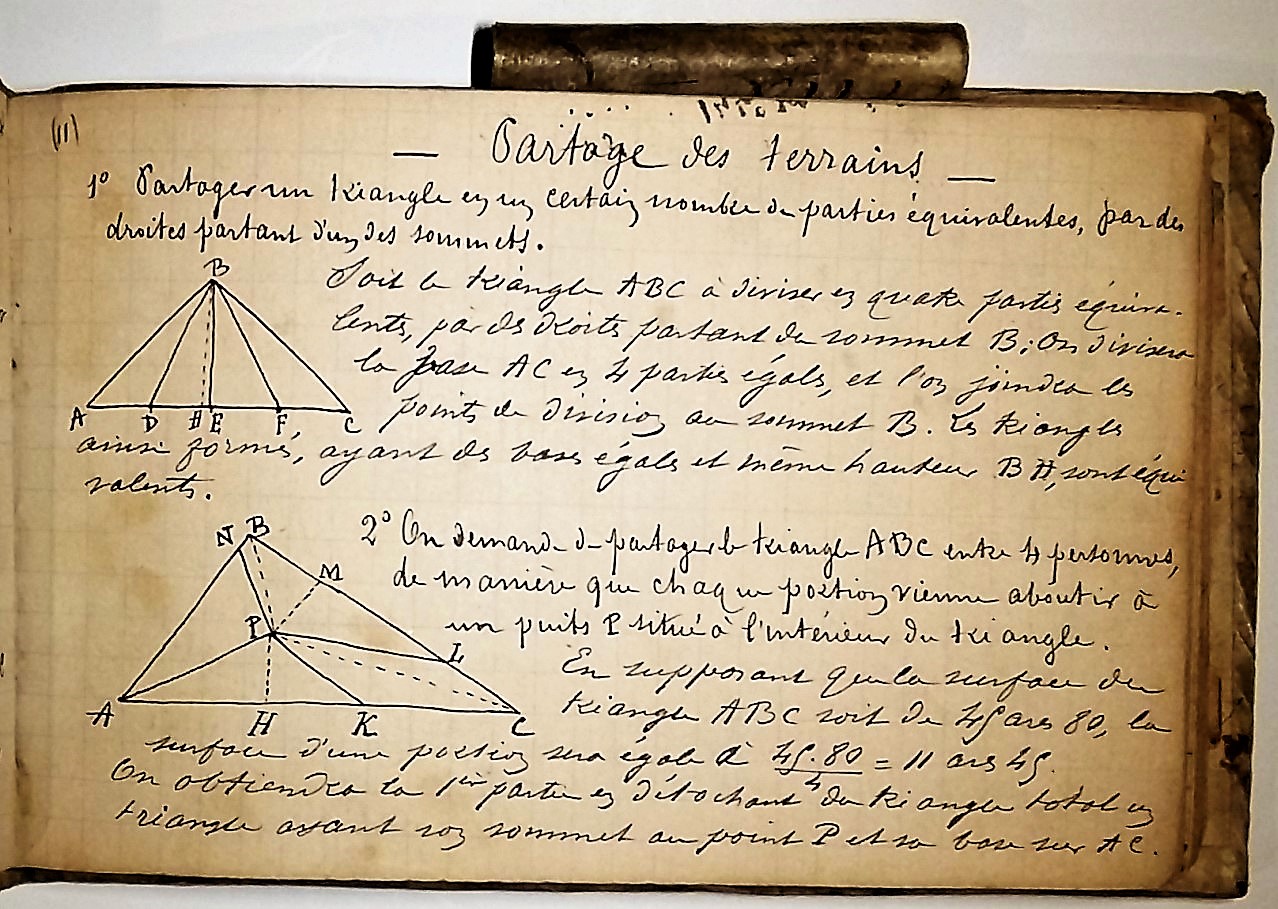 (11)
— Partage des terrains —
1° Partager un triangle en un certain nombre de parties équivalentes, par des
droites partant d'un des sommets.
B
A D H E F C
Soit le triangle ABC à diviser en quatre parties équiva-
lentes, par des droites partant du sommet B; On divisera
la base AC en 4 parties égales, et l'on joindra les
points de division au sommet B. Les triangles
ainsi formés, ayant des bases égales et même hauteur BH, sont équi
valents.
N B
M
P
L
A H K C
2° On demande de partager le triangle ABC entre 4 personnes,
de manière que chaque portion vienne aboutir à
un puits P situé à l'intérieur du triangle.
En supposant que la surface du
triangle ABC soit de 45 ares 80, la
surface d'une portion sera égale à 45.80/4 = 11 ares 45.
On obtiendra la 1ère partie en détachant du triangle total un
triangle ayant son sommet au point P et sa base sur AC.